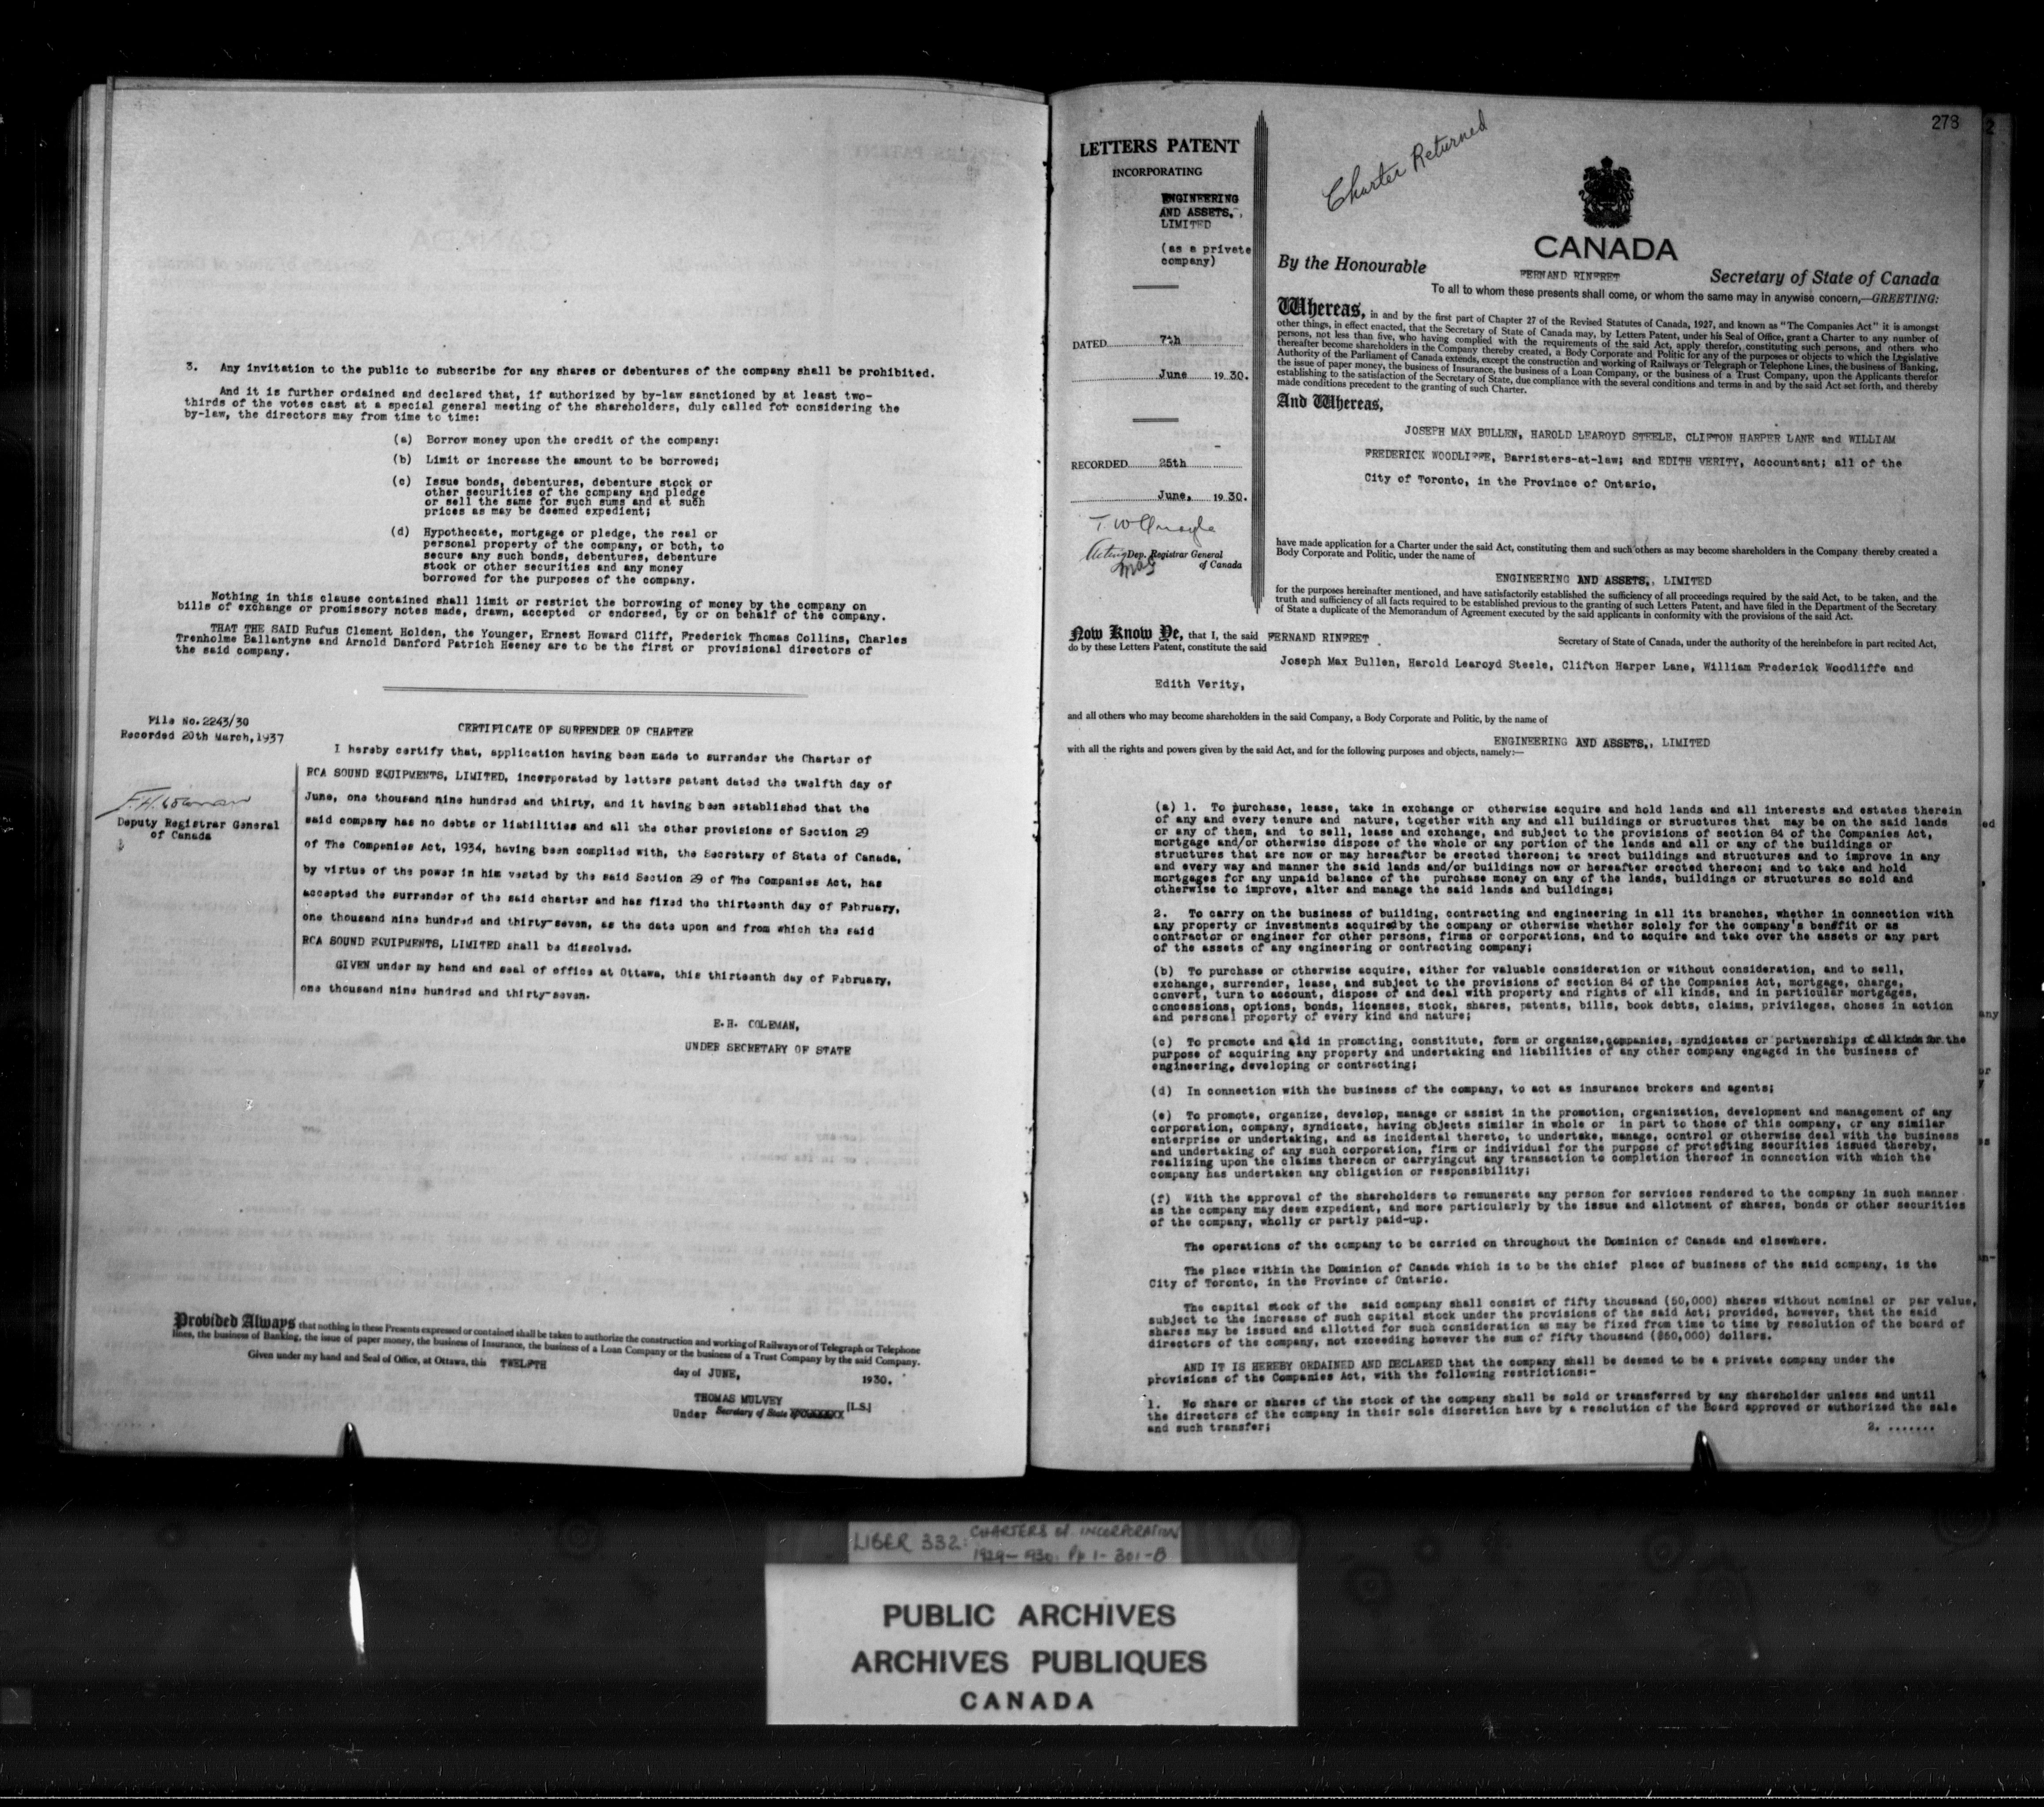 3. Any invitation to the public to subscribe for any shares or debentures of the company shall be prohibited.
And it is further ordained and declared that, if authorized by by-law sanctioned by at least two-
thirds of the votes cast at a special general meeting of the shareholders, duly called for considering the
by-law, the directors may from time to time:
(a) Borrow money upon the credit of the company:
(b) Limit or increase the amount to be borrowed;
(c) Issue bonds, debentures, debenture stock or
other securities of the company and pledge
or sell the same for such sums and at such
prices as may be deemed expedient;
(d) Hypothecate, mortgage or pledge, the real or
personal property of the company, or both, to
secure any such bonds, debentures, debenture
stock or other securities and any money
borrowed for the purposes of the company.
Nothing in this clause contained shall limit or restrict the borrowing of money by the company on
bills of exchange or promissory notes made, drawn, accepted or endorsed, by or on behalf of the company.
THAT THE SAID Rufus Clement Holden, the Younger, Ernest Howard Cliff, Frederick Thomas Collins, Charles
Trenholme Ballantyne and Arnold Danford Patrich Heeney are to be the first or provisional directors of
the said company.
File No. 2243/30
Recorded 20th March, 1937
Deputy Registrar General
of Canada
CERTIFICATE OF SURRENDER OF CHARTER
I hereby certify that, application having been made to surrender the Charter of
RCA SOUND EQUIPMENTS, LIMITED, incorporated by letters patent dated the twelfth day of
June, one thousand nine hundred and thirty, and it having been established that the
said company has no debts or liabilities and all the other provisions of Section 29
of The Companies Act, 1934, having been complied with, the Secretary of State of Canada,
by virtue of the power in him vested by the said Section 29 of The Companies Act, has
accepted the surrender of the said charter and has fixed the thirteenth day of February,
one thousand nine hundred and thirty-seven, as the date upon and from which the said
RCA SOUND EQUIPMENTS, LIMITED shall be dissolved.
GIVEN under my hand and seal of office at Ottawa, this thirteenth day of February,
one thousand nine hundred and thirty-seven.
E.H. COLEMAN,
UNDER SECRETARY OF STATE
Provided Always that nothing in these Presents expressed or contained shall be taken to authorize the construction and working of Railways or of Telegraph or Telephone
lines, the business of Banking, the issue of paper money, the business of Insurance, the business of a Loan Company or the business of a Trust Company by the said Company.
Given under my hand and Seal of Office, at Ottawa, this TWELFTH day of JUNE, 1930.
THOMAS MULVEY
Under Secretary of State [L.S.]
278
LETTERS PATENT
INCORPORATING
ENGINEERING
AND ASSETS,
LIMITED
(as a private
company)
DATED 7th
June 1930.
RECORDED 25th
June, 1930.
Acting Dep. Registrar General
of Canada
Charter Returned
CANADA
By the Honourable FERNAND RINFRET Secretary of State of Canada
To all to whom these presents shall come, or whom the same may in anywise concern,—GREETING:
Whereas, in and by the first part of Chapter 27 of the Revised Statutes of Canada, 1927, and known as "The Companies Act" it is amongst
other things, in effect enacted, that the Secretary of State of Canada may, by Letters Patent, under his Seal of Office, grant a Charter to any number of
persons, not less than five, who having complied with the requirements of the said Act, apply therefor, constituting such persons, and others who
thereafter become shareholders in the Company thereby created, a Body Corporate and Politic for any of the purposes or objects to which the Legislative
Authority of the Parliament of Canada extends, except the construction and working of Railways or Telegraph or Telephone Lines, the business of Banking,
the issue of paper money, the business of Insurance, the business of a Loan Company, or the business of a Trust Company, upon the Applicants therefor
establishing to the satisfaction of the Secretary of State, due compliance with the several conditions and terms in and by the said Act set forth, and thereby
made conditions precedent to the granting of such Charter.
And Whereas,
JOSEPH MAX BULLEN, HAROLD LEAROYD STEELE, CLIFTON HARPER LANE and WILLIAM
FREDERICK WOODLIFFE, Barristers-at-law; and EDITH VERITY, Accountant; all of the
City of Toronto, in the Province of Ontario,
have made application for a Charter under the said Act, constituting them and such others as may become shareholders in the Company thereby created a
Body Corporate and Politic, under the name of
ENGINEERING AND ASSETS,, LIMITED
for the purposes hereinafter mentioned, and have satisfactorily established the sufficiency of all proceedings required by the said Act, to be taken, and the
truth and sufficiency of all facts required to be established previous to the granting of such Letters Patent, and have filed in the Department of the Secretary
of State a duplicate of the Memorandum of Agreement executed by the said applicants in conformity with the provisions of the said Act.
Now Know Ye, that I, the said FERNAND RINFRET Secretary of State of Canada, under the authority of the hereinbefore in part recited Act,
do by these Letters Patent, constitute the said
Joseph Max Bullen, Harold Learoyd Steele, Clifton Harper Lane, William Frederick Woodliffe and
Edith Verity,
and all others who may become shareholders in the said Company, a Body Corporate and Politic, by the name of
ENGINEERING AND ASSETS,, LIMITED
with all the rights and powers given by the said Act, and for the following purposes and objects, namely:—
(a) 1. To purchase, lease, take in exchange or otherwise acquire and hold lands and all interests and estates therein
of any and every tenure and nature, together with any and all buildings or structures that may be on the said lands
or any of them, and to sell, lease and exchange, and subject to the provisions of section 84 of the Companies Act,
mortgage and/or otherwise dispose of the whole or any portion of the lands and all or any of the buildings or
structures that are now or may hereafter be erected thereon; to erect buildings and structures and to improve in any
and every way and manner the said lands and/or buildings now or hereafter erected thereon; and to take and hold
mortgages for any unphaid balance of the purchase money on any of the lands, buildings or structures so sold and
otherwise to improve, alter and manage the said lands and buildings;
2. To carry on the business of building, contracting and engineering in all its branches, whether in connection with
any property or investments acquired by the company or otherwise whether solely for the company's benefit or as
contractor or engineer for other persons, firms or corporations, and to acquire and take over the assets or any part
of the assets of any engineering or contracting company;
(b) To purchase or otherwise acquire, either for valuable consideration or without consideration, and to sell,
exchange, surrender, lease, and subject to the provisions of section 84 of the Companies Act, mortgage, charge,
convert, turn to account, dispose of and deal with property and rights of all kinds, and in particular mortgages,
concessions, options, bonds, licenses, stock, shares, patents, bills, book debts, claims, privileges, choses in action
and personal property of every kind and nature;
(c) To promote and aid in promoting, constitute, form or organize, companies, syndicates or partnerships of all kinds for the
purpose of acquiring any property and undertaking and liabilities of any other company engaged in the business of
engineering, developing or contracting;
(d) In connection with the business of the company, to act as insurance brokers and agents;
(e) To promote, organize, develop, manage or assist in the promotion, organization, development and management of any
corporation, company, syndicate, having objects similar in whole or in part to those of this company, or any similar
enterprise or undertaking, and as incidental thereto, to undertake, manage, control or otherwise deal with the business
and undertaking of any such corporation, firm or individual for the purpose of protecting securities issued thereby,
realizing upon the claims thereon or carryingcut any transaction to completion thereof in connection with which the
company has undertaken any obligation or responsibility;
(f) With the approval of the shareholders to remunerate any person for services rendered to the company in such manner
as the company may deem expedient, and more particularly by the issue and allotment of shares, bonds or other securities
of the company, wholly or partly paid-up.
The operations of the company to be carried on throughout the Dominion of Canada and elsewhere.
The place within the Dominion of Canada which is to be the chief place of business of the said company, is the
City of Toronto, in the Province of Ontario.
The capital stock of the said company shall consist of fifty thousand (50,000) shares without nominal or par value,
subject to the increase of such capital stock under the provisions of the said Act; provided, however, that the said
shares may be issued and allotted for such consideration as may be fixed from time to time by resolution of the board of
directors of the company, not exceeding however the sum of fifty thousand ($50,000) dollars.
AND IT IS HEREBY ORDAINED AND DECLARED that the company shall be deemed to be a private company under the
provisions of the Companies Act, with the following restrictions:-
1. No share or shares of the stock of the company shall be sold or transferred by any shareholder unless and until
the directors of the company in their sole discretion have by a resolution of the Board approved or authorized the sale
and such transfer;
2. .......
LIBER 332: CHARTERS of INCORPORATION
1929-1930. Pp 1-301-B
PUBLIC ARCHIVES
ARCHIVES PUBLIQUES
CANADA